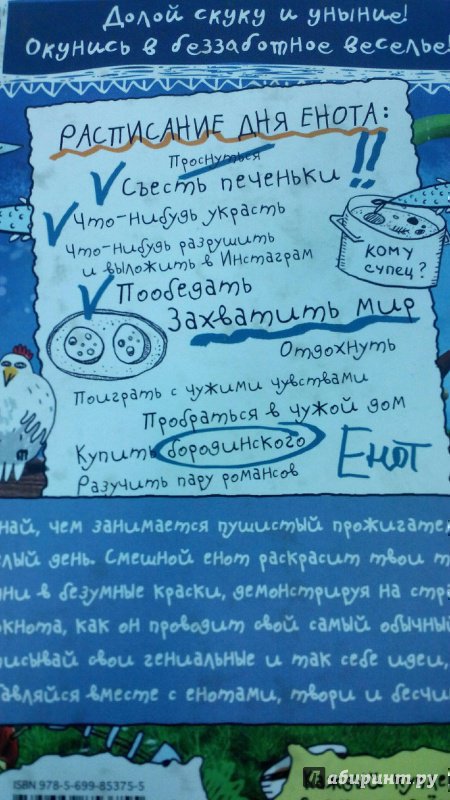 Долой скуку и уныние!
Окунись в беззаботное веселье!
Расписание дня енота:
Проснуться
Съесть печеньки !!
Что-нибудь украсть
Что-нибудь разрушить
и выложить в Инстаграм
Кому
супец?
Пообедать
Захватить мир
Отдохнуть
Поиграть с чужими чувствами
Пробраться в чужой дом
Купить бородинского
Енот
Разучить пару романсов
чем занимается пушистый
день. Смешной енот раскрасит твои
в безумные краски, демонстрируя на
как он проводит свой самый обычный
свои гениальные и так себе идеи,
вместе с енотами, твори и
ISBN 978-5-699-85375-5
Лабиринт.ру